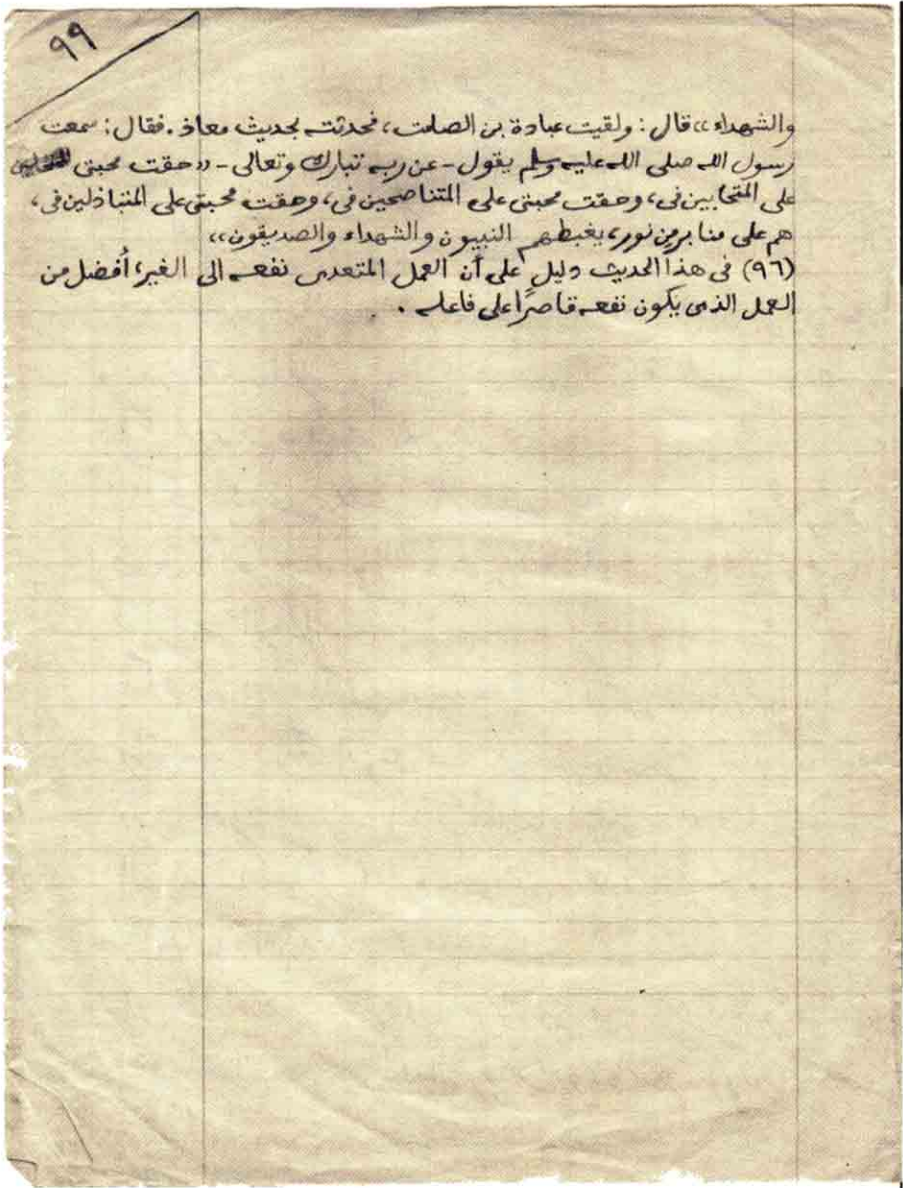 ٩٩
والشهداء» قال: ولقيت عبادة بن الصامت، فحدثته بحديث معاذ. فقال: سمعت
رسول الله صلى الله عليه وسلم يقول - عن ربه تبارك وتعالى - «حقت محبتى
على المتحابين فى، وحقت محبتى على المتناصحين فى، وحقت محبتى على المتباذلين فى،
هم على منابر من نور، يغبطهم النبيون والشهداء والصديقون»
(٩٦) فى هذا الحديث دليل على أن العمل المتعدى نفعه الى الغير، أفضل من
العمل الذى يكون نفعه قاصرًا على فاعله.